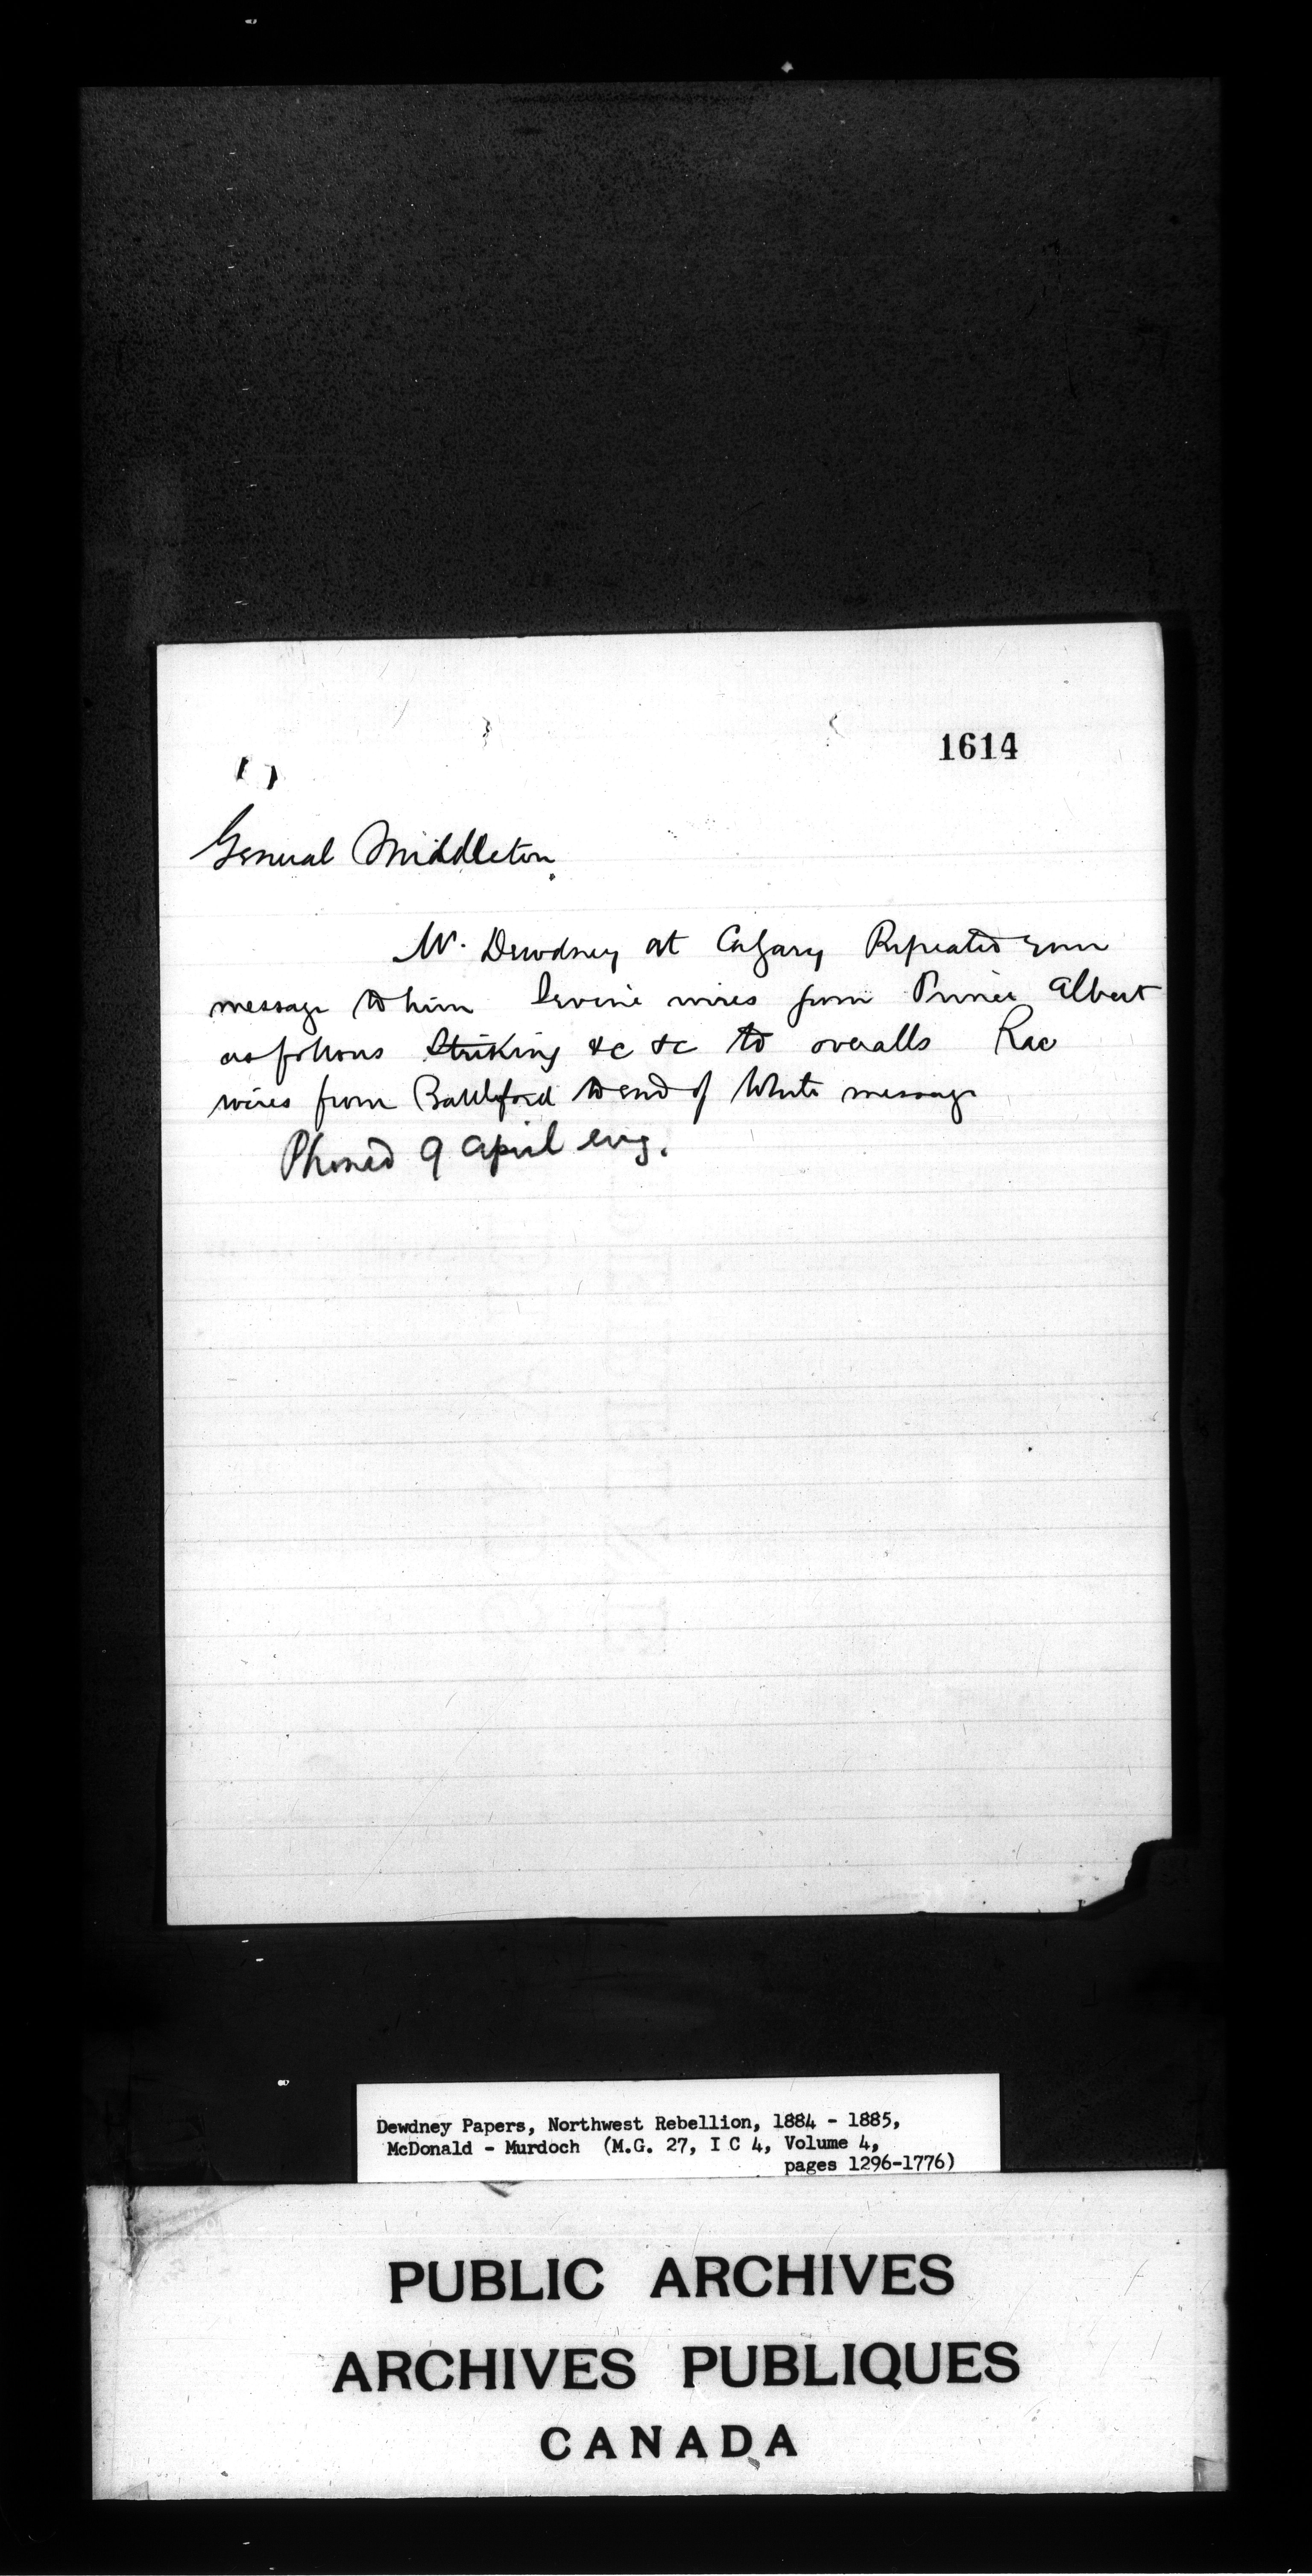 1614
General Middleton
Mr. Dewdney at Calgary Repeated your
message to him Irvine wires from Prince Albert
as follows Striking &c &c to overalls Rae
wires from Battleford to end of White message
Phoned 9 April evg.
Dewdney Papers, Northwest Rebellion, 1884 - 1885,
McDonald - Murdoch (M.G. 27, I C 4, Volume 4,
pages 1296-1776)
PUBLIC ARCHIVES
ARCHIVES PUBLIQUES
CANADA